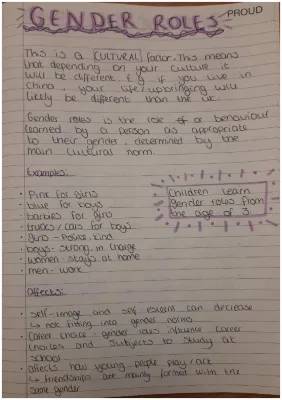 GENDER ROLES
PROUD
This is a CULTURAL factor. This means
that depending on your culture it
will be different. E.g. if you live in
China, your life/upbringing will
likely be different than the UK.
Gender roles is the role or behaviour
learned by a person as appropriate
to their gender, determined by the
main cultural norm.
Examples:
· Pink for girls
· blue for boys
· barbies for girls
· trucks/cars for boys
· girls - Polite, kind
· boys - strong, in charge
· women - stays at home
· men - work
Children learn
gender roles from
the age of 3
Affects:
· self-image and self esteem can decrease
↳ not fitting into gender norms
· Career choice - gender roles influence career
choices and subjects to study at
school
· affects how young people play/act
↳ friendships are mainly formed with the
same gender